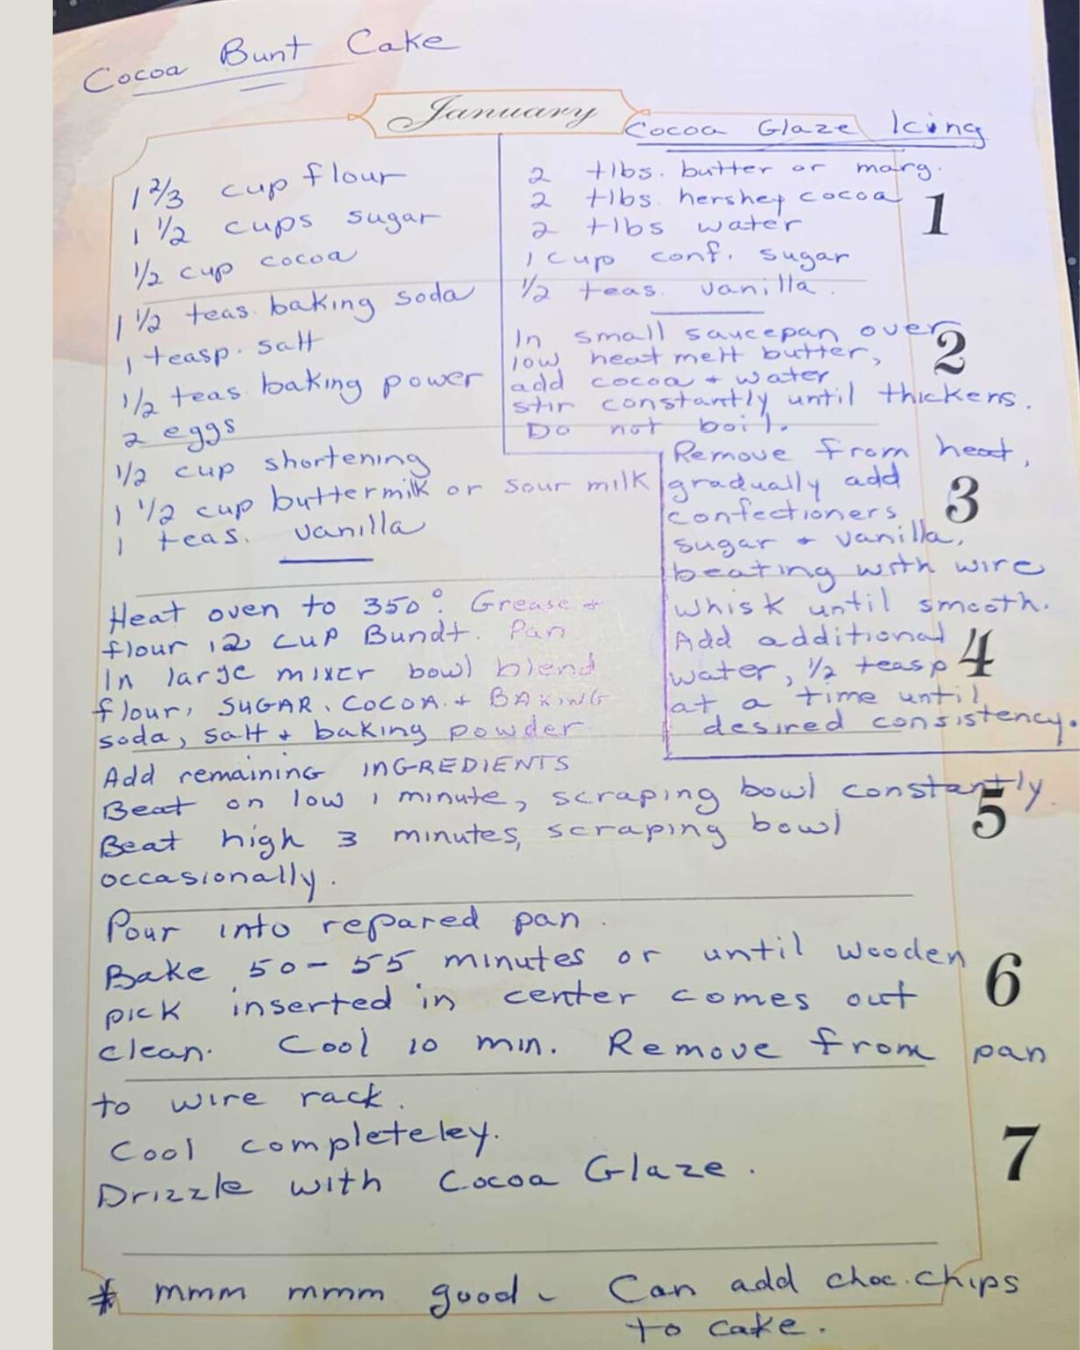 Cocoa Bunt Cake
January
1 2/3 cup flour
1 1/2 cups sugar
1/2 cup cocoa
1 1/2 teas. baking soda
1 teasp. salt
1/2 teas. baking power
2 eggs
1/2 cup shortening
1 1/2 cup buttermilk or sour milk
1 teas. vanilla
Cocoa Glaze Icing
2 tlbs. butter or marg.
2 tlbs. hershey cocoa
2 tlbs water
1 cup conf. sugar
1/2 teas. vanilla.
In small saucepan over
low heat melt butter,
add cocoa + water
stir constantly until thickens.
Do not boil.
Remove from heat,
gradually add
confectioners
sugar + vanilla,
beating with wire
whisk until smooth.
Add additional
water, 1/2 teasp
at a time until
desired consistency.
Heat oven to 350°. Grease +
flour 12 cup Bundt. Pan
In large mixer bowl blend
flour, SUGAR, COCOA + BAKING
soda, salt + baking powder
Add remaining INGREDIENTS
Beat on low 1 minute, scraping bowl constantly.
Beat high 3 minutes, scraping bowl
occasionally.
Pour into repared pan.
Bake 50-55 minutes or until wooden
pick inserted in center comes out
clean. Cool 10 min. Remove from pan
to wire rack.
Cool completeley.
Drizzle with Cocoa Glaze.
* mmm mmm good - Can add choc. chips
to cake.
1
2
3
4
5
6
7